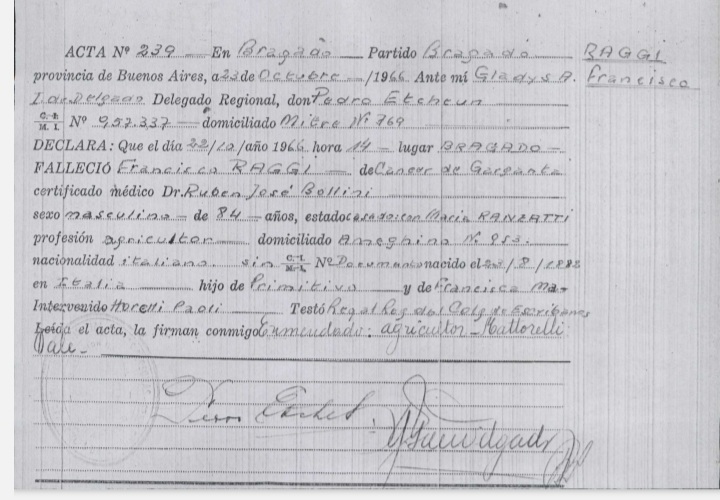 ACTA Nº 239 — En Bragado — Partido Bragado
RAGGI
Francisco
provincia de Buenos Aires, a 23 de Octubre — /1966 Ante mí Gladys A.
Delegado Regional, don Pedro Etcheun
C. I. / M. I. Nº 957.337 — domiciliado Mitre Nº 769
DECLARA: Que el día 22/10/año 1966 hora 14 — lugar BRAGADO —
FALLECIÓ Francisco RAGGI — de Cancer de Garganta
certificado médico Dr. Ruben José Bollini
sexo masculino — de 84 — años, estado casado con Maria RANZATTI
profesión agricultor — domiciliado Ameghino Nº 953.
nacionalidad italiano. sin C. I. / M. I. Nº Documento nacido el /8/1882
en Italia — hijo de Primitivo — y de Francisca Ma-
Intervenido Paoli — Testó Reg del Coleg de Escribanos
Leída el acta, la firman conmigo Enmendado: agricultor - Mattorelli
Vale. —